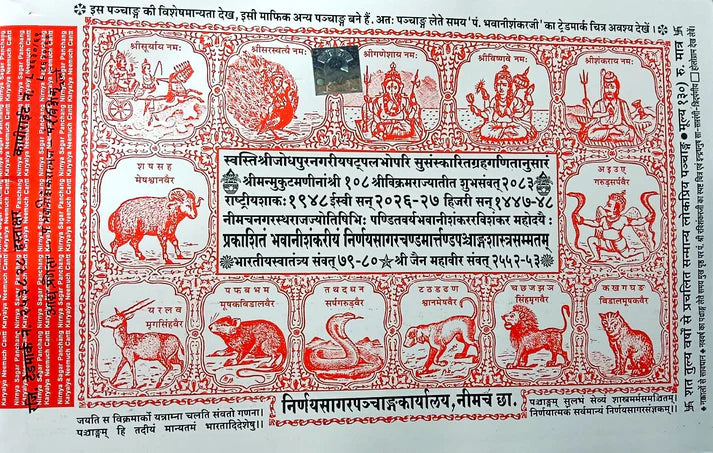 इस पञ्चाङ्ग की विशेषमान्यता देख, इसी माफिक अन्य पञ्चाङ्ग बने हैं. अतः पञ्चाङ्ग लेते समय 'पं. भवानीशंकरजी' का ट्रेडमार्क चित्र अवश्य देखें।
श्रीसूर्याय नमः
श्रीसरस्वत्यै नमः
श्रीगणेशाय नमः
श्रीविष्णवे नमः
श्रीशंकराय नमः
स्वस्तिश्रीजोधपुरनगरीयषट्पलभोपरि सुसंस्कारितग्रहगणितानुसारं
श्रीमन्मुकुटमणीनांश्री १०८ श्रीविक्रमराज्यातीत शुभसंवत् २०८३
राष्ट्रीयशाकः १९४८ ईस्वी सन् २०२६-२७ हिजरी सन् १४४७-४८
नीमचनगरस्थराजज्योतिषिभिः पण्डितवर्यभवानीशंकररविशंकर महोदयैः
प्रकाशितं भवानीशंकरीयं निर्णयसागरचण्डमार्त्तण्डपञ्चाङ्गशास्त्रसम्मतम्
भारतीयस्वातंत्र्य संवत् ७९-८० श्री जैन महावीर संवत् २५५२-५३
श ष स ह
मेषश्वानवैर
अ इ उ ए
गरुड़सर्पवैर
य र ल व
मृगसिंहवैर
प फ ब भ म
मूषकबिडालवैर
त थ द ध न
सर्पगरुड़वैर
ट ठ ड ढ ण
श्वानमेषवैर
च छ ज झ ञ
सिंहमृगवैर
क ख ग घ ङ
बिडालमूषकवैर
निर्णयसागरपञ्चाङ्गकार्यालय, नीमच छा.
जयति स विक्रमार्को यन्नाम्ना चलति संवतो गणना।
पञ्चाङ्गम् हि तदीयं मान्यतमं भारतादिदेशेषु।।
पञ्चाङ्गम् सुलभं सेव्यं शास्त्रमर्मसमन्वितम्।
निर्णयात्मकं सर्वमान्यं निर्णयसागरसंज्ञकम्।।
शत तुल्य वर्षों से प्रचलित सन्मान्य लोकप्रिय पञ्चाङ्ग मूल्य १३०) रु. मात्र
Nirnya Sagar Panchang
Karyalya Neemuch Cantt